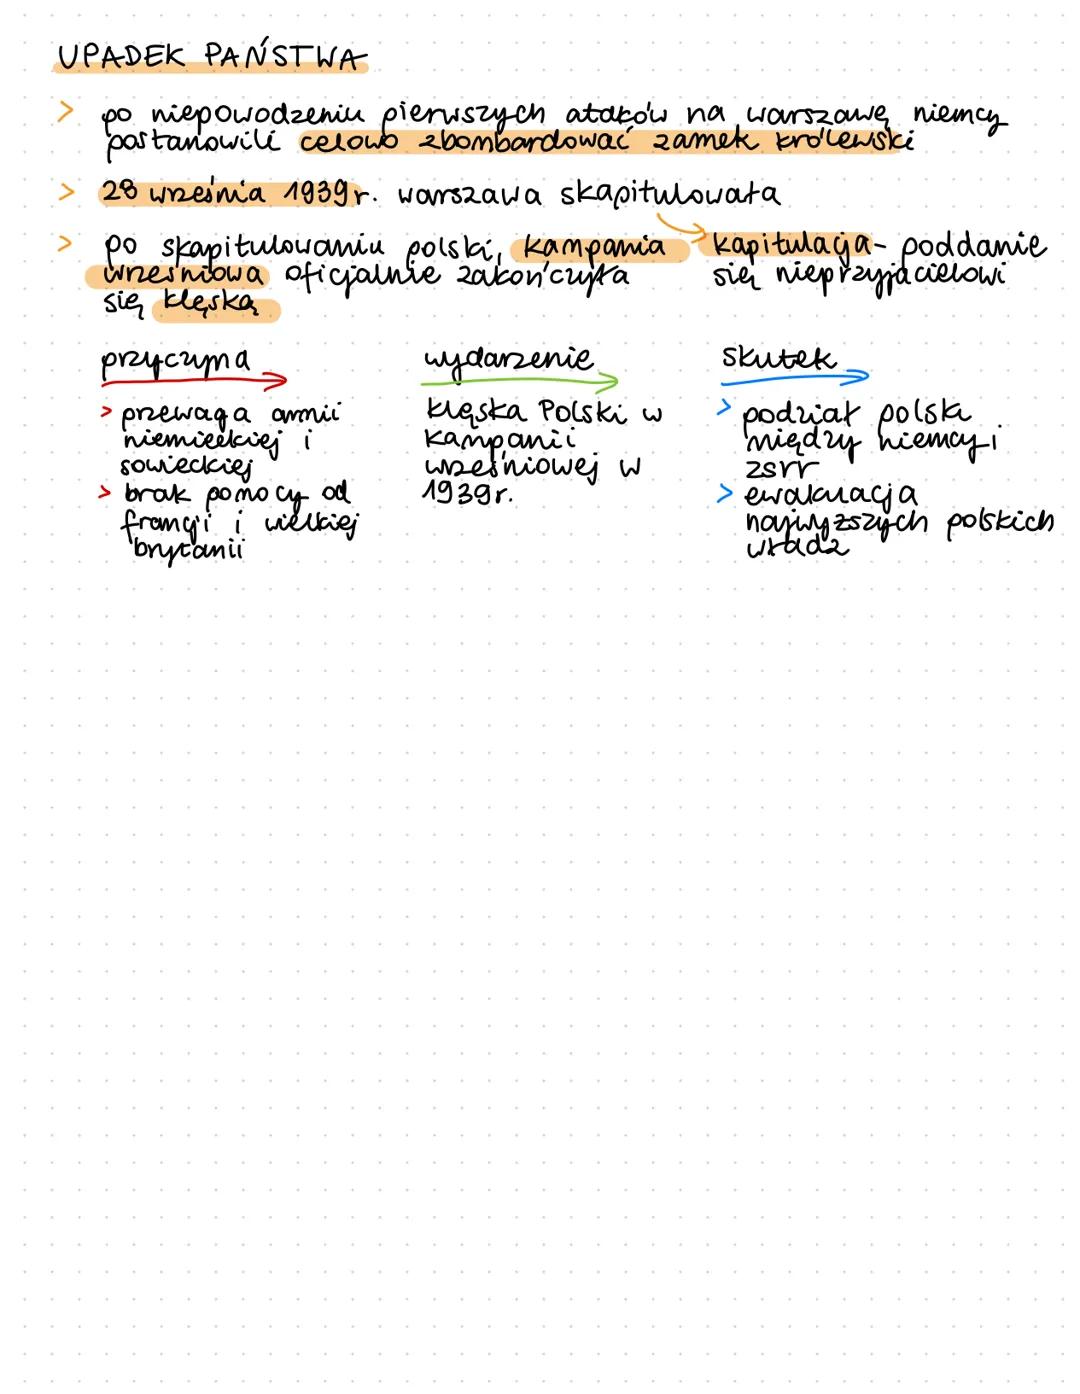 UPADEK PAŃSTWA
> po niepowodzeniu pierwszych ataków na warszawę niemcy
postanowili celowo zbombardować zamek królewski
> 28 września 1939r. warszawa skapitulowała
> po skapitulowaniu polski, kampania
wrześniowa oficjalnie zakończyła
się klęską
kapitulacja - poddanie
się nieprzyjacielowi
przyczyna
> przewaga armii
niemieckiej i
sowieckiej
> brak pomocy od
francji i wielkiej
brytanii
wydarzenie
klęska Polski w
kampanii
wrześniowej w
1939r.
skutek
> podział polski
między niemcy i
zsrr
> ewakuacja
najwyższych polskich
władz